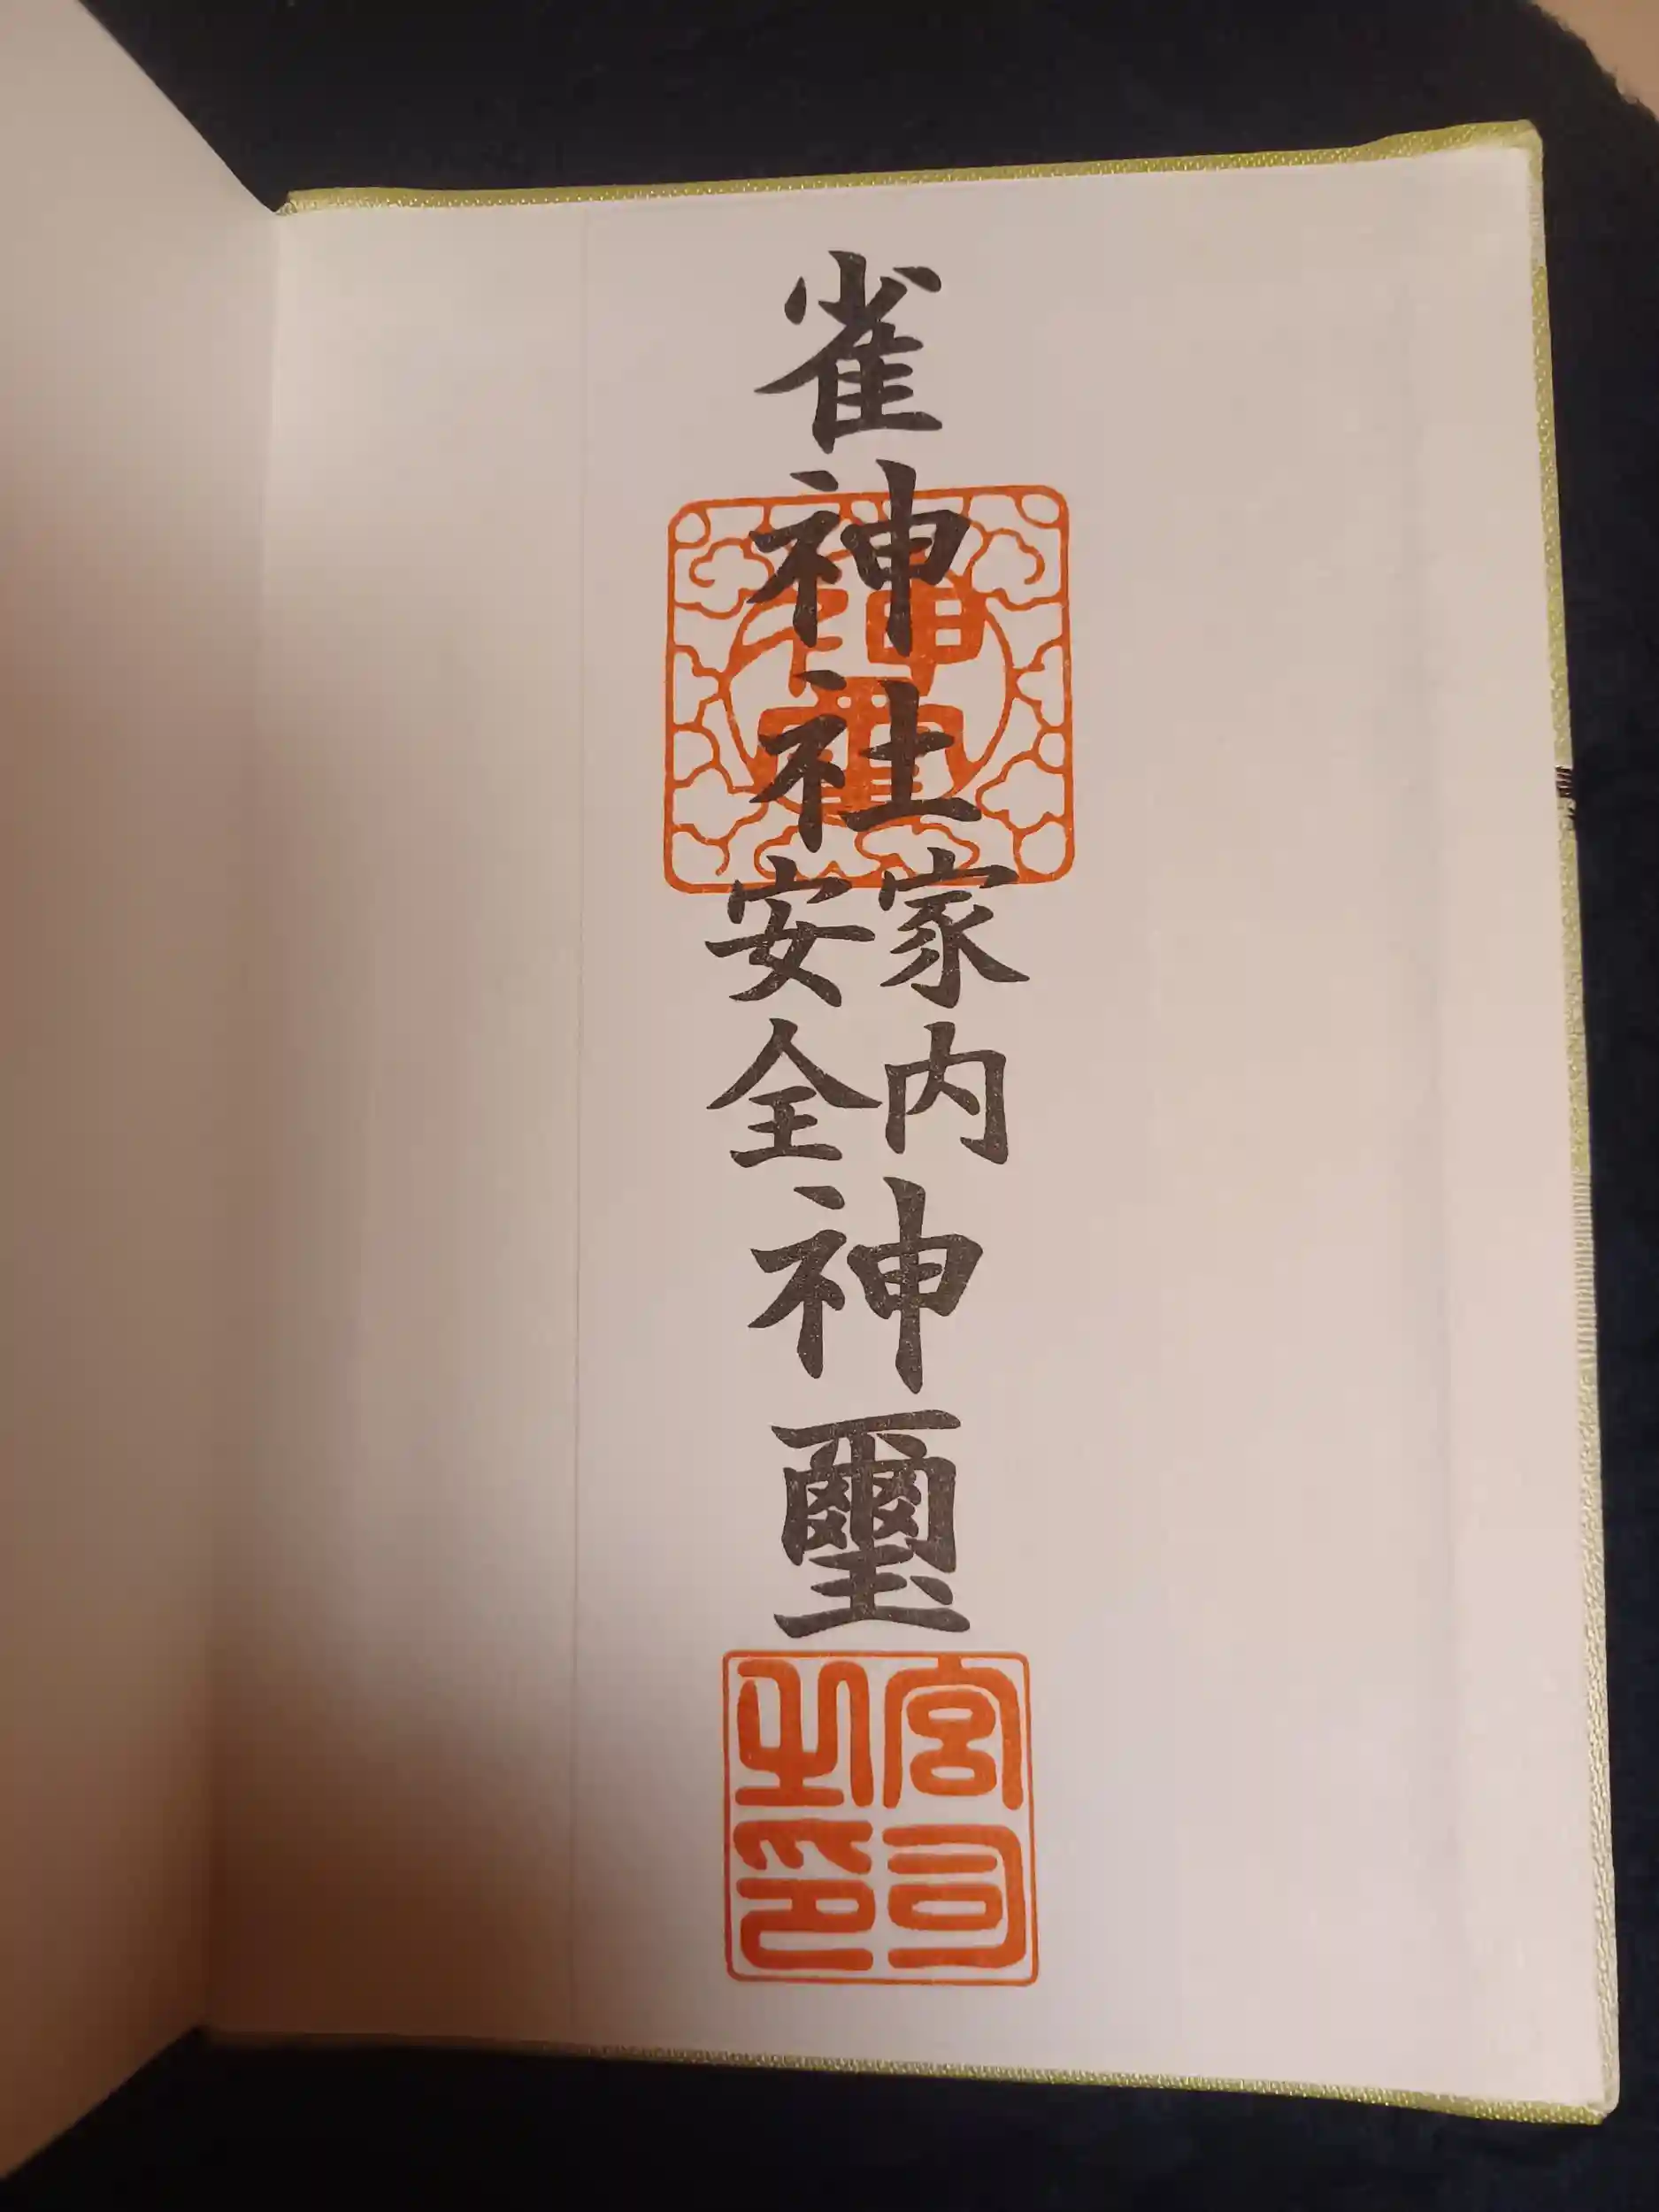 雀神社
家内
安全
神璽
宮司
之印